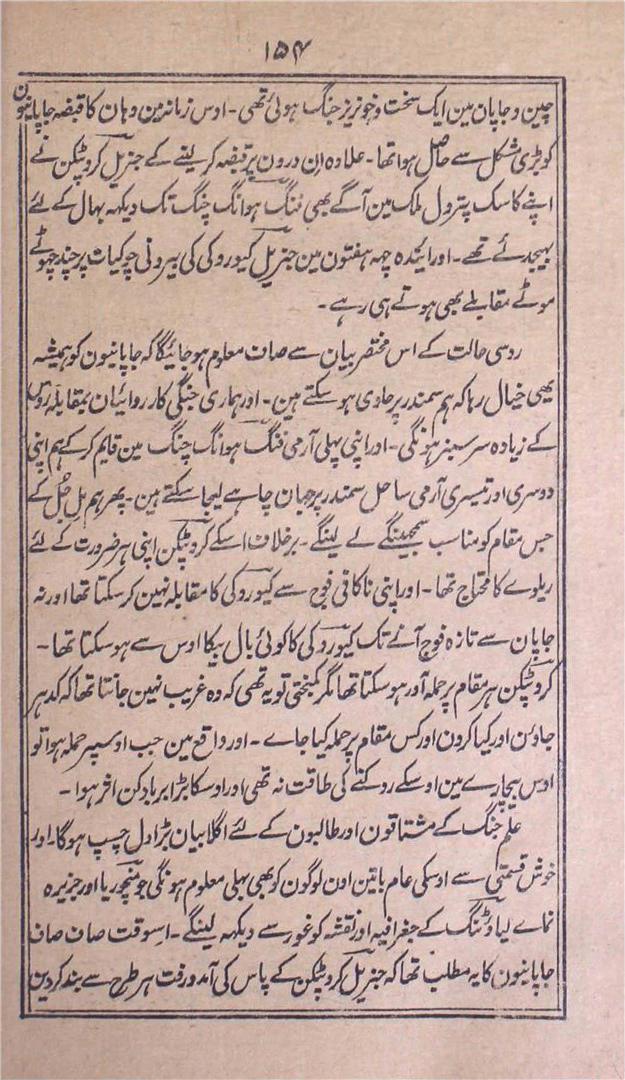 ۱۵۴
چین و جاپان مین ایک سخت و خونریز جنگ ہوئی تھی - اوس زمانہ مین وہان کا قبضہ جاپانیون
کو بڑی مشکل سے حاصل ہوا تھا - علاوہ ان درون پر قبضہ کر لینے کے جنریل کروپٹکن نے
اپنے کاسک پٹرول ملک مین آگے بھی فنگ ہوانگ چنگ تک دیکھ بہال کے لئے
بہیجدئے تھے - اور ائندہ چہہ ہفتون مین جنریل کیوروکی کی بیرونی چوکیات پر چند چھوٹے
موٹے مقابلے بھی ہوتے ہی رہے -
روسی حالت کے اس مختصر بیان سے صاف معلوم ہو جائیگا کہ جاپانیون کو ہمیشہ
یھی خیال رہا کہ ہم سمندر پر حاوی ہو سکتے ہین - اور ہماری جنگی کارروائیان بمقابلہ روس
کے زیادہ سرسبز ہونگی - اور اپنی پہلی آرمی فنگ ہوانگ چنگ مین قایم کر کے ہم اپنی
دوسری اور تیسری آرمی ساحل سمندر پر جہان چاہے لیجا سکتے ہین - پھر ہم مل جُل کے
جس مقام کو مناسب سمجھینگے لے لینگے - برخلاف اسکے کروپٹکن اپنی ہر ضرورت کے لئے
ریلوے کا محتاج تھا - اور اپنی ناکافی فوج سے کیوروکی کا مقابلہ نہین کر سکتا تھا اور نہ
جاپان سے تازہ فوج آنے تک کیوروکی کا کوئی بال بیکا اوس سے ہو سکتا تھا -
کروپٹکن ہر مقام پر حملہ آور ہو سکتا تھا مگر کمبختی تو یہ تھی کہ وہ غریب نہین جانتا تھا کہ کدہر
جاؤن اور کیا کرون اور کس مقام پر حملہ کیا جاے - اور واقع مین جب اوسپر حملہ ہوا تو
اوس بیچارے مین اوسکے روکنے کی طاقت نہ تھی اور اوسکا بڑا برباد کن اثر ہوا -
علم جنگ کے مشتاقون اور طالبون کے لئے اگلا بیان بڑا دل چسپ ہوگا - اور
خوش قسمتی سے اوسکی عام باتین اون لوگون کو بھی بہلی معلوم ہونگی جو منچوریا اور جزیرہ
نماے لیاؤٹنگ کے جغرافیہ اور نقشہ کو غور سے دیکھہ لینگے - اسوقت صاف صاف
جاپانیون کا یہ مطلب تھا کہ جنریل کروپٹکن کے پاس کی آمد و رفت ہر طرح سے بند کر دین